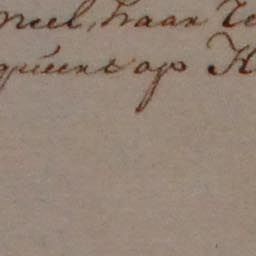 neel, haar Te
quent op K